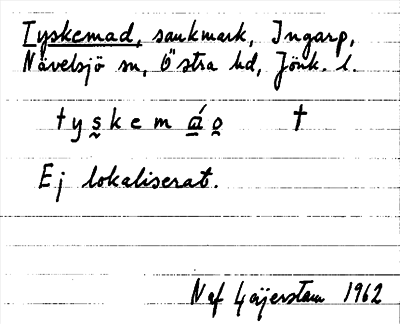 Tyskemad, sankmark, Ingarp,
Nävelsjö sn, Östra hd, Jönk. l.
tys̰kem á̱o̱ †
Ej lokaliserat.
N af Geijerstam 1962